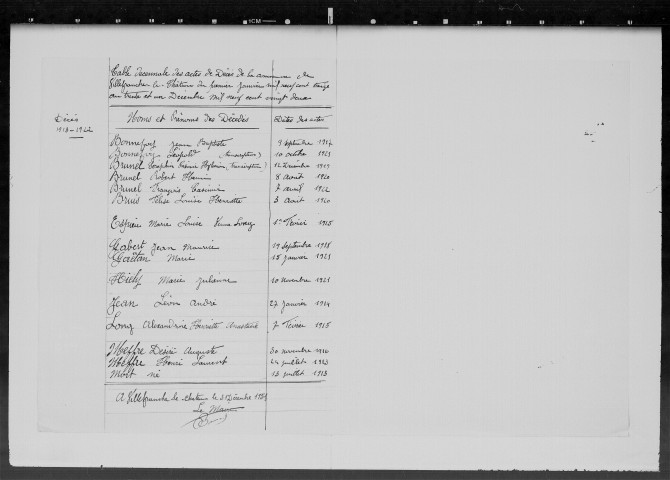 Table décennale des actes de Décès de la commune de
Villefranche le Château du premier janvier mil neuf cent treize
au trente et un Décembre mil neuf cent vingt deux
Décès
1913-1922
Noms et Prénoms des Décédés Dates des actes
Bonnefoy Jean Baptiste 9 septembre 1914
Bonnefoy Léopold (transcription) 10 octobre 1921
Brunel (transcription) 12 Décembre 1919
Brunel Robert 8 août 1920
Brunel François Casimir 7 avril 1922
Brus Elise Louise Henriette 3 août 1920
Marie Louise 1er février 1915
Gabert Jean Maurice 19 septembre 1918
Gaëtan Marie 15 janvier 1921
Hiély Marie Julienne 10 novembre 1921
Jean Léon André 27 janvier 1914
Long Alexandrine Henriette 7 février 1915
Meffre Désiré Auguste 30 novembre 1916
Meffre Henri Laurent juillet 1913
Mort né 13 juillet 1913
A Villefranche le Château le 31 Décembre
Le Maire
1 CM